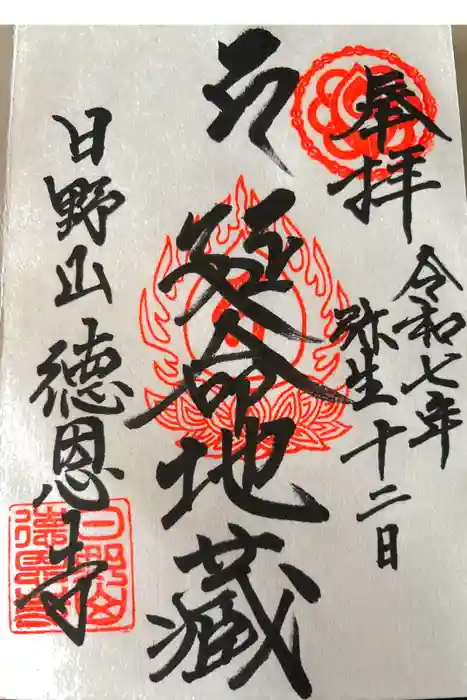 奉拝
令和七年
弥生十二日
延命地蔵
日野山 徳恩寺